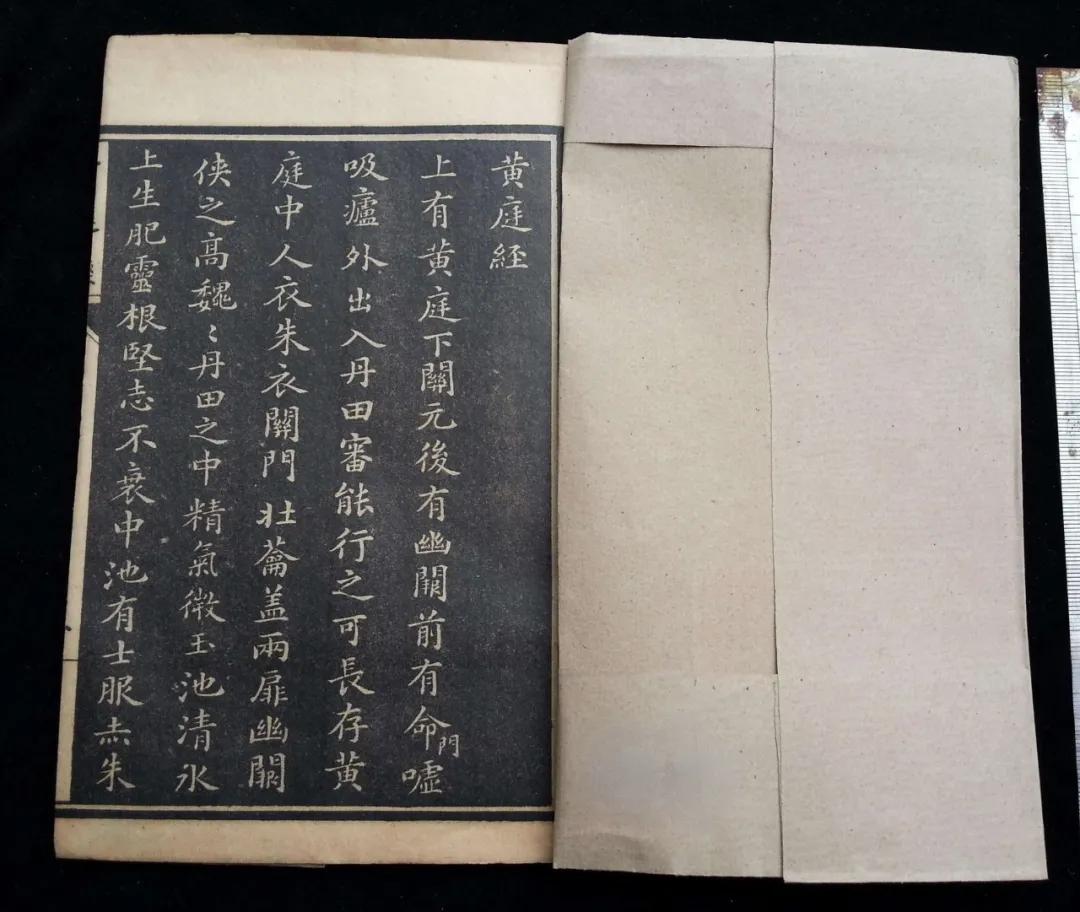 黄庭経
上有黄庭下關元後有幽闕前有命門噓
吸廬外出入丹田審能行之可長存黄
庭中人衣朱衣關門壯蘥盖兩扉幽闕
侠之高魏〻丹田之中精氣微玉池清水
上生肥靈根堅志不衰中池有士服赤朱